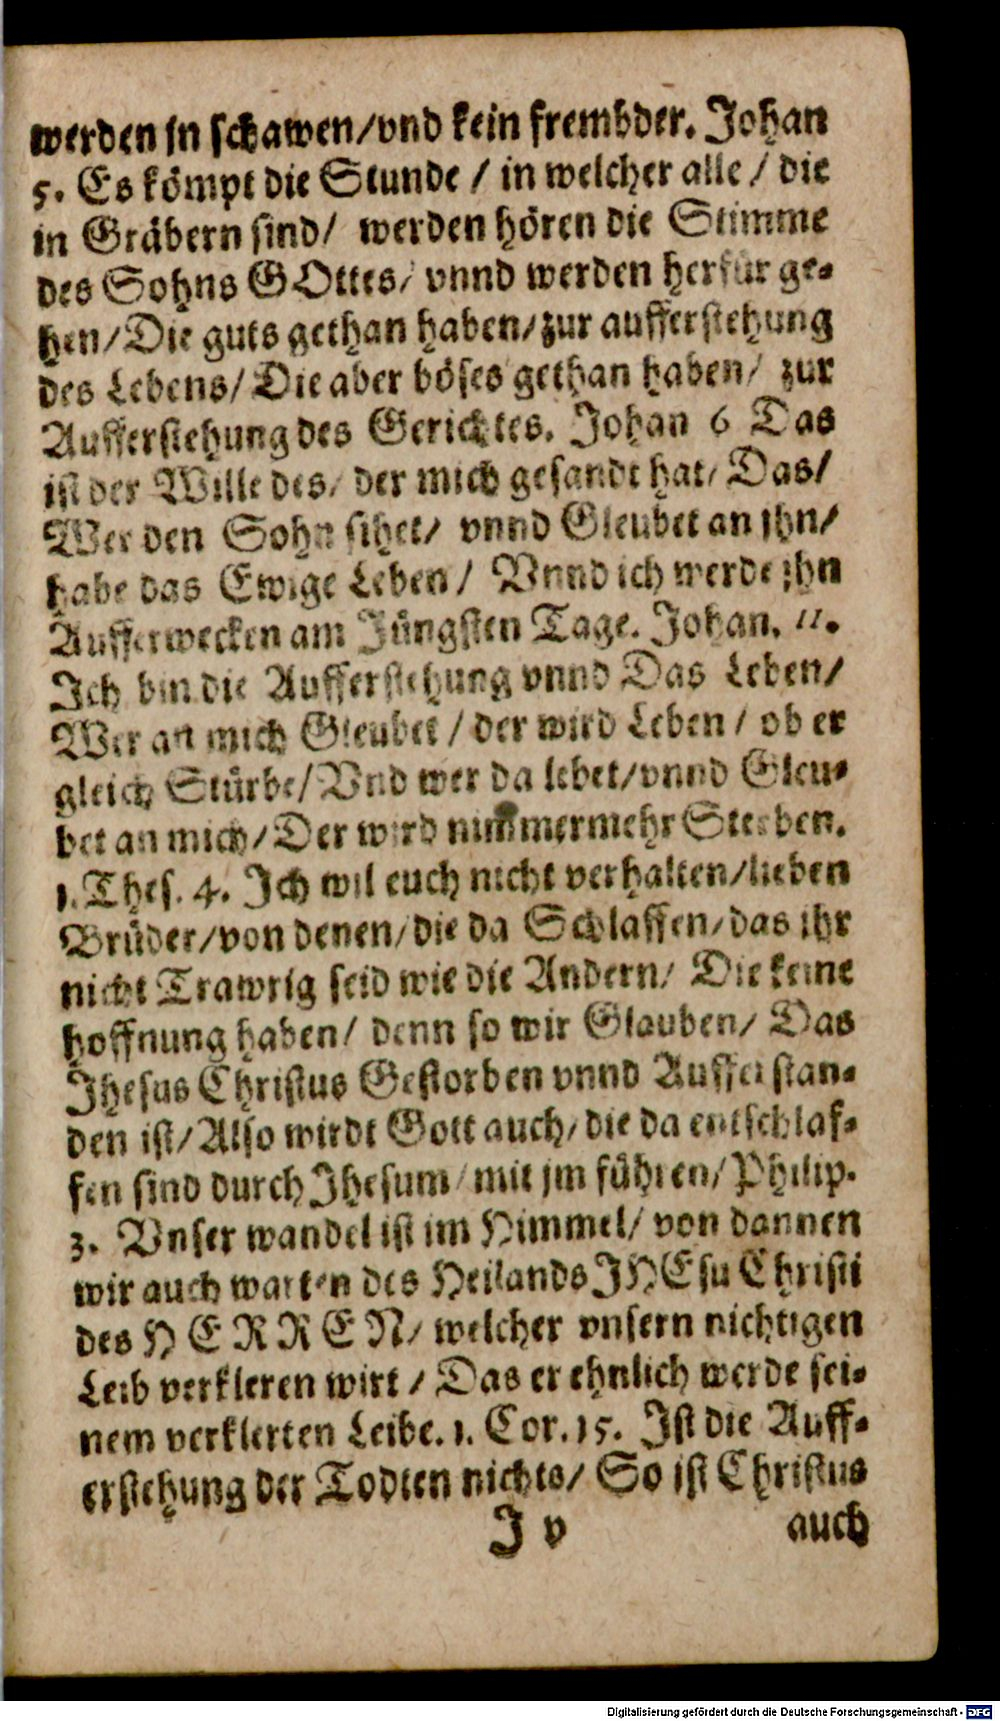 werden jn schawen/vnd kein frembder. Johan
5. Es kömpt die Stunde / in welcher alle / die
in Gräbern sind/ werden hören die Stimme
des Sohns GOttes/ vnnd werden herfür ge-
hen/Die guts gethan haben/zur aufferstehung
des Lebens/Die aber böses gethan haben/ zur
Aufferstehung des Gerichtes. Johan 6 Das
ist der Wille des/ der mich gesandt hat/ Das/
Wer den Sohn sihet/ vnnd Gleubet an jhn/
habe das Ewige Leben/ Vnnd ich werde jhn
Aufferwecken am Jüngsten Tage. Johan. 11.
Ich bin die Aufferstehung vnnd Das Leben/
Wer an mich Gleubet / der wird Leben / ob er
gleich Stürbe/Vnd wer da lebet/vnnd Gleu-
bet an mich/Der wird nimmermehr Sterben.
1. Thes. 4. Ich wil euch nicht verhalten/lieben
Brüder/von denen/die da Schlaffen/das jhr
nicht Trawrig seid wie die Andern/ Die keine
hoffnung haben/ denn so wir Glauben/ Das
Jhesus Christus Gestorben vnnd Aufferstan-
den ist/Also wirdt Gott auch/die da entschlaf-
fen sind durch Jhesum/mit jm führen/Philip.
3. Vnser wandel ist im Himmel/ von dannen
wir auch warten des Heilands JHEsu Christi
des HERREN/ welcher vnsern nichtigen
Leib verkleren wirt / Das er ehnlich werde sei-
nem verklerten Leibe. 1. Cor. 15. Ist die Auff-
erstehung der Todten nichts/ So ist Christus
J v auch
Digitalisierung gefördert durch die Deutsche Forschungsgemeinschaft - DFG